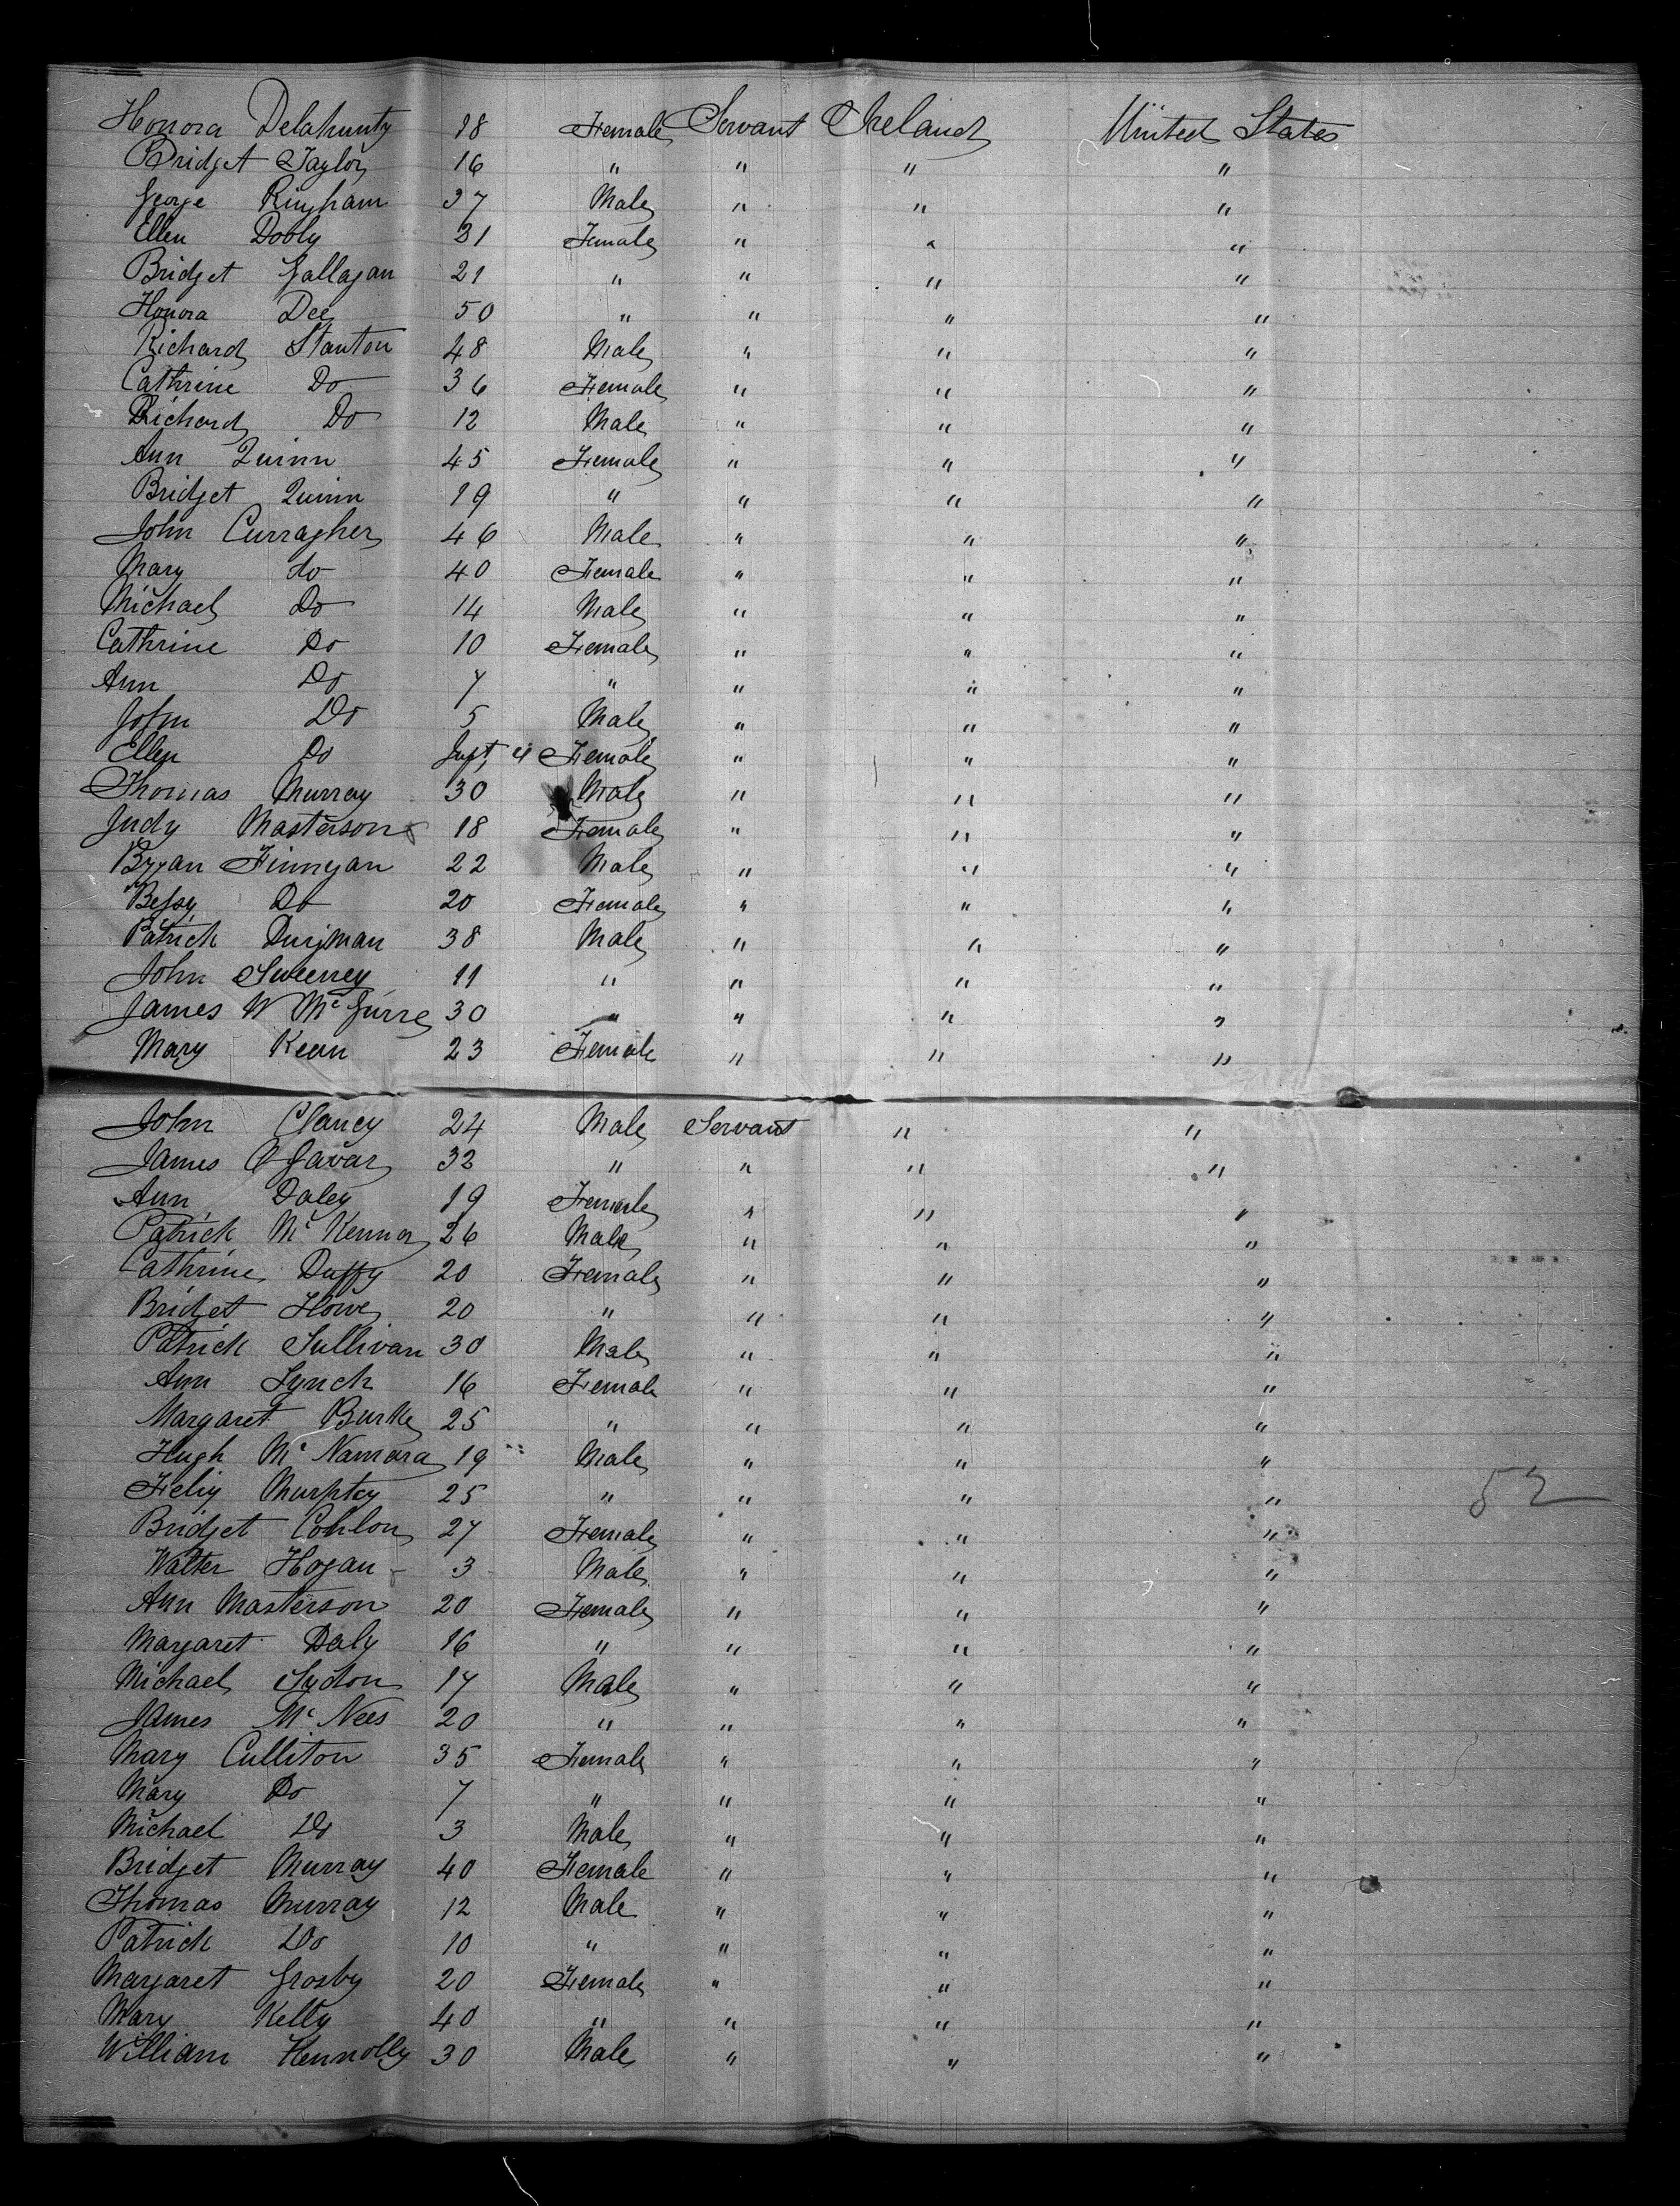 Honora Delahunty 18 Female Servant Ireland United States
Bridget Taylor 16 " " " "
George Bingham 37 Male " " "
Ellen Dooly 31 Female " " "
Bridget Gallagan 21 " " " "
Honora Dee 50 " " " "
Richard Stanton 48 Male " " "
Cathrine Do 36 Female " " "
Richard Do 12 Male " " "
Ann Quinn 45 Female " " "
Bridget Quinn 19 " " " "
John Curragher 46 Male " " "
Mary do 40 Female " " "
Michael Do 14 Male " " "
Cathrine Do 10 Female " " "
Ann Do 7 " " " "
John Do 5 Male " " "
Ellen Do Inft Female " " "
Thomas Murray 30 Male " " "
Judy Masterson 18 Female " " "
Bryan Finnegan 22 Male " " "
Bessy Do 20 Female " " "
Patrick 38 Male " " "
John Sweeney 11 " " " "
James W McGurre 30 " " " "
Mary Kean 23 Female " " "
John Clancy 24 Male Servant " "
James O Gavar 32 " " " "
Ann Daley 19 Female " " "
Patrick McKenna 26 Male " " "
Cathrine Duffy 20 Female " " "
Bridget Howe 20 " " " "
Patrick Sullivan 30 Male " " "
Ann Lynch 16 Female " " "
Margaret Burke 25 " " " "
Hugh McNamara 19 Male " " "
Felix Murphey 25 " " " "
52
Bridget Conlon 27 Female " " "
Walter Hogan 3 Male " " "
Ann Masterson 20 Female " " "
Margaret Daly 16 " " " "
Michael Lydon 17 Male " " "
James McNees 20 " " " "
Mary Culliton 35 Female " " "
Mary Do 7 " " " "
Michael Do 3 Male " " "
Bridget Murray 40 Female " " "
Thomas Murray 12 Male " " "
Patrick Do 10 " " " "
Margaret Grosby 20 Female " " "
Mary Kelly 40 " " " "
William Kennolly 30 Male " " "